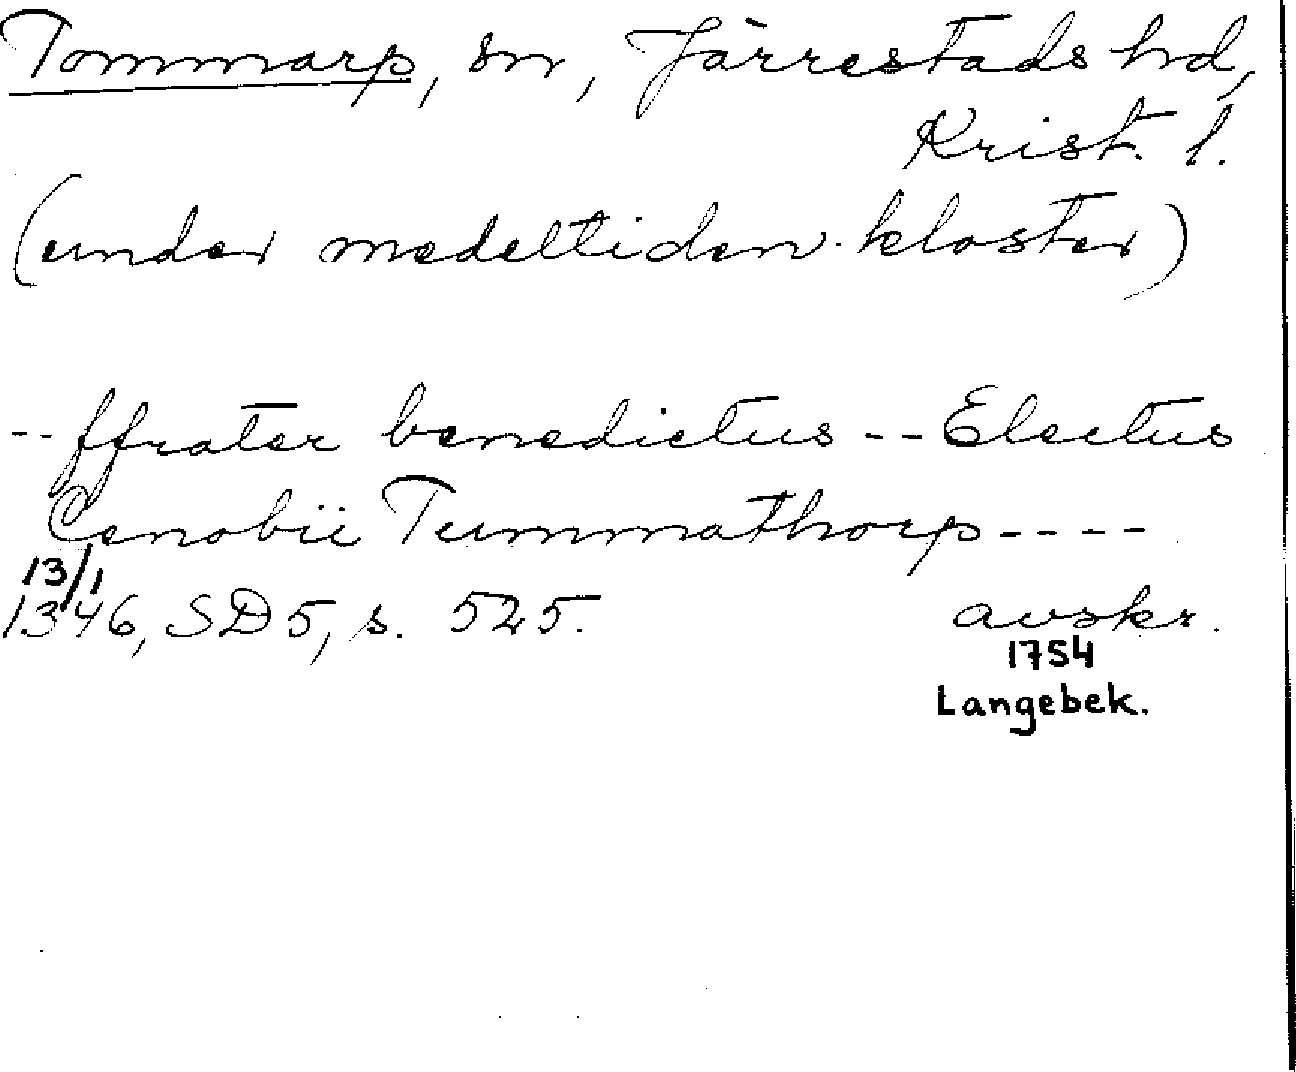 Tommarp, sn, Järrestads hd,
Krist. l.
(under medeltiden kloster)
-- ffrater benedictus -- Electus
Cenobii Tummathorp ----
13/1
1346, SD 5, s. 525. avskr.
1754
Langebek.